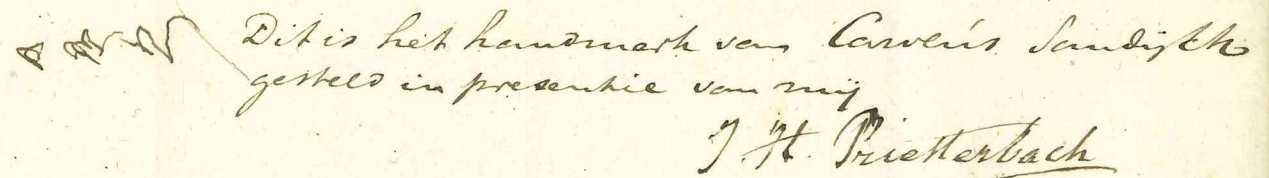 Dit is het handmerk van Carvens Sandijck
gesteld in presentie van mij
J. H. Prietterbach